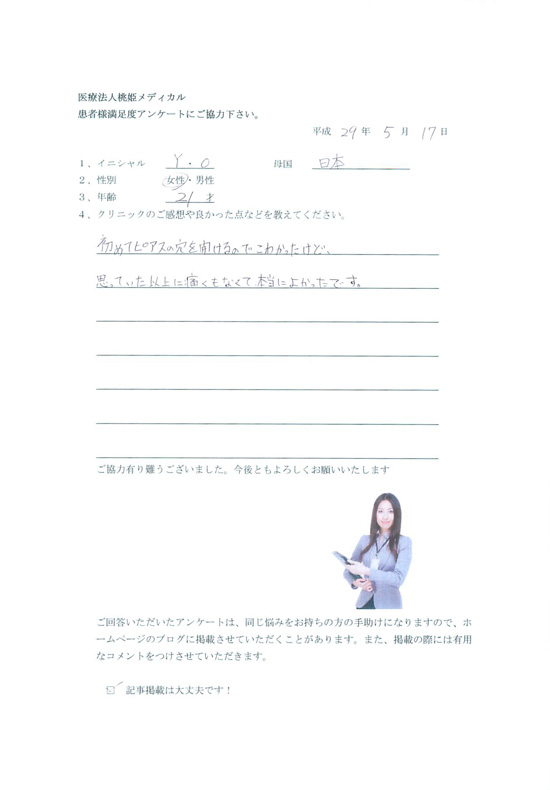 医療法人桃姫メディカル
患者様満足度アンケートにご協力下さい。
平成 29 年 5 月 17 日
1、イニシャル Y・O 母国 日本
2、性別 女性・男性
3、年齢 21 才
4、クリニックのご感想や良かった点などを教えてください。
初めてピアスの穴を開けるのでこわかったけど、
思っていた以上に痛くもなくて本当によかったです。
ご協力有り難うございました。今後ともよろしくお願いいたします
ご回答いただいたアンケートは、同じ悩みをお持ちの方の手助けになりますので、ホ
ームページのブログに掲載させていただくことがあります。また、掲載の際には有用
なコメントをつけさせていただきます。
記事掲載は大丈夫です！